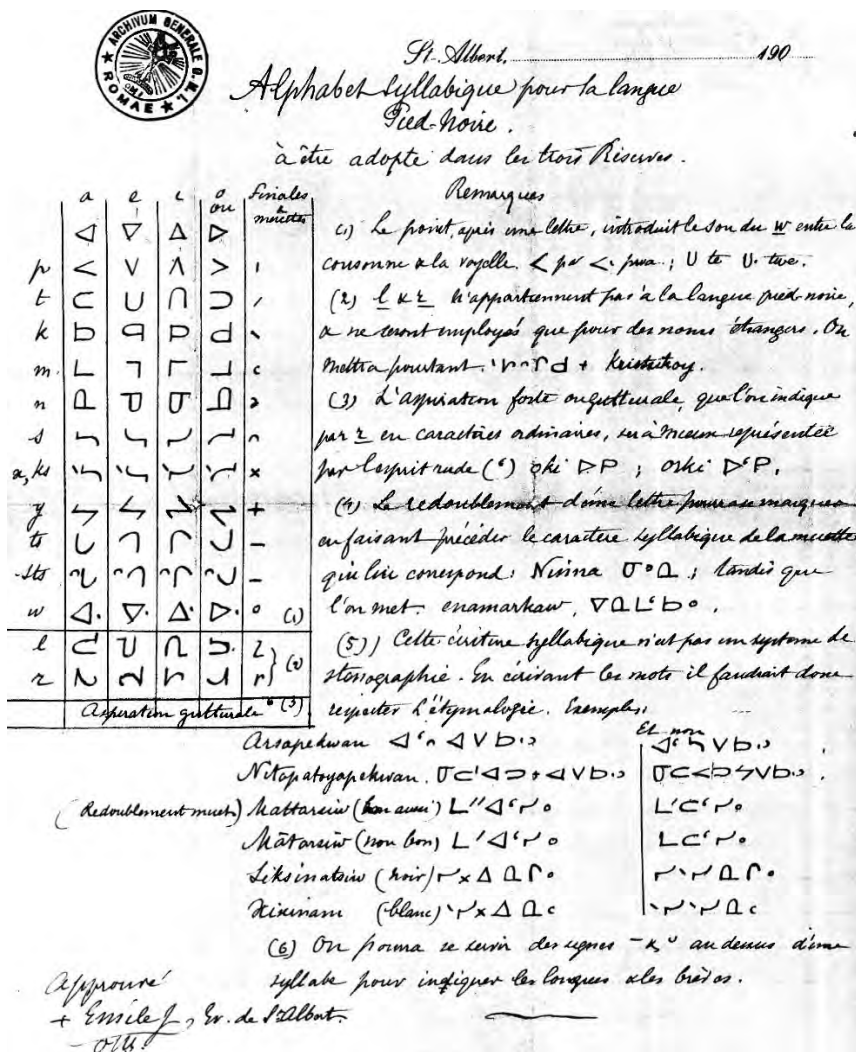 ARCHIVUM GENERALE O.M.I.
★ ROMAE ★
St. Albert, 190
Alphabet syllabique pour la langue
Pied-Noire.
à être adopté dans les trois Réserves.
a e i o ou Finales muettes
ᐊ ᐁ ᐃ ᐅ
p ᐸ ᐯ ᐱ ᐳ ᑊ
t ᑕ ᑌ ᑎ ᑐ ᐟ
k ᑲ ᑫ ᑭ ᑯ ᐠ
m. ᒪ ᒣ ᒥ ᒧ ᒼ
n ᓇ ᓀ ᓂ ᓄ ᐣ
s ᓴ ᓭ ᓯ ᓱ ᐢ
x, ks ᐠᓴ ᐠᓭ ᐠᓯ ᐠᓱ ×
y ᔭ ᔦ ᔨ ᔪ +
ts ᒐ ᒉ ᒋ ᒍ –
sts ᐢᒐ ᐢᒉ ᐢᒋ ᐢᒍ –
w ᐊ· ᐁ· ᐃ· ᐅ· ° (1)
l (2)
r
Aspiration gutturale ʽ (3)
Remarques
(1) Le point, après une lettre, introduit le son du w entre la
consonne & la voyelle. ᐸ pa ᐸ· pwa ; ᑌ te ᑌ· twe.
(2) l & r n'appartiennent pas à la langue pied-noire,
& ne seront employés que pour des noms étrangers. On
mettra pourtant
(3) L'aspiration forte ou gutturale, que l'on indique
par r en caractères ordinaires, sera mieux représentée
par l'esprit rude (ʽ) oki ᐅᑭ ; orki ᐅʽᑭ.
(4) Le redoublement d'une lettre pourra se marquer
en faisant précéder le caractère syllabique de la muette
qui lui correspond : Ninna ; tandis que
l'on met enamarkaw, ᐁᓇᒪʽᑲ°.
(5) Cette écriture syllabique n'est pas un système de
sténographie. En écrivant les mots il faudrait donc
respecter l'étymologie. Exemples :
Et non
Arsapekwan ᐊʽᐢᐊᐯᑲ·ᐣ ᐊʽᓴᐯᑲ·ᐣ
Nitopatoyapekwan.
(Redoublement muet) Mattarsiw ᒪᐟᐟᐊʽᓯ° ᒪᐟᑕʽᓯ°
Mātarsiw (non bon) ᒪᐟᐊʽᓯ° ᒪᑕʽᓯ°
Siksinatsiw (noir) ᓯ×ᐃᓇᒋ° ᓯᐠᓯᓇᒋ°
Xixinam (blanc) ᐠᓯ×ᐃᓇᒼ ᐠᓯᐠᓯᓇᒼ
(6) On pourra se servir des signes – & ᴗ au dessus d'une
syllabe pour indiquer les longues & les brèves.
Approuvé
+ Émile J., Ev. de St Albert.
OMI.